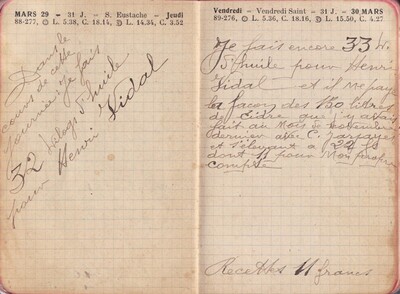 MARS 29 — 31 J. — S. Eustache — Jeudi
88-277, L. 5.38, C. 18.14, D L. 14.34, C. 3.52
Dans le
cours de cette
journée je fais
32 d'huile
pour Henri Fidal
Vendredi — Vendredi Saint — 31 J. — 30 MARS
89-276, L. 5.36, C. 18.16, D L. 15.50, C. 4.27
Je fais encore 33
d'huile pour Henri
Fidal et il me paye
la façon des 150 litres
de cidre que j'y avais
fait au mois de novembre
dernier avec C.
et s'élevant à 22 fs
dont 11 pour mon propre
compte
Recettes 11 francs